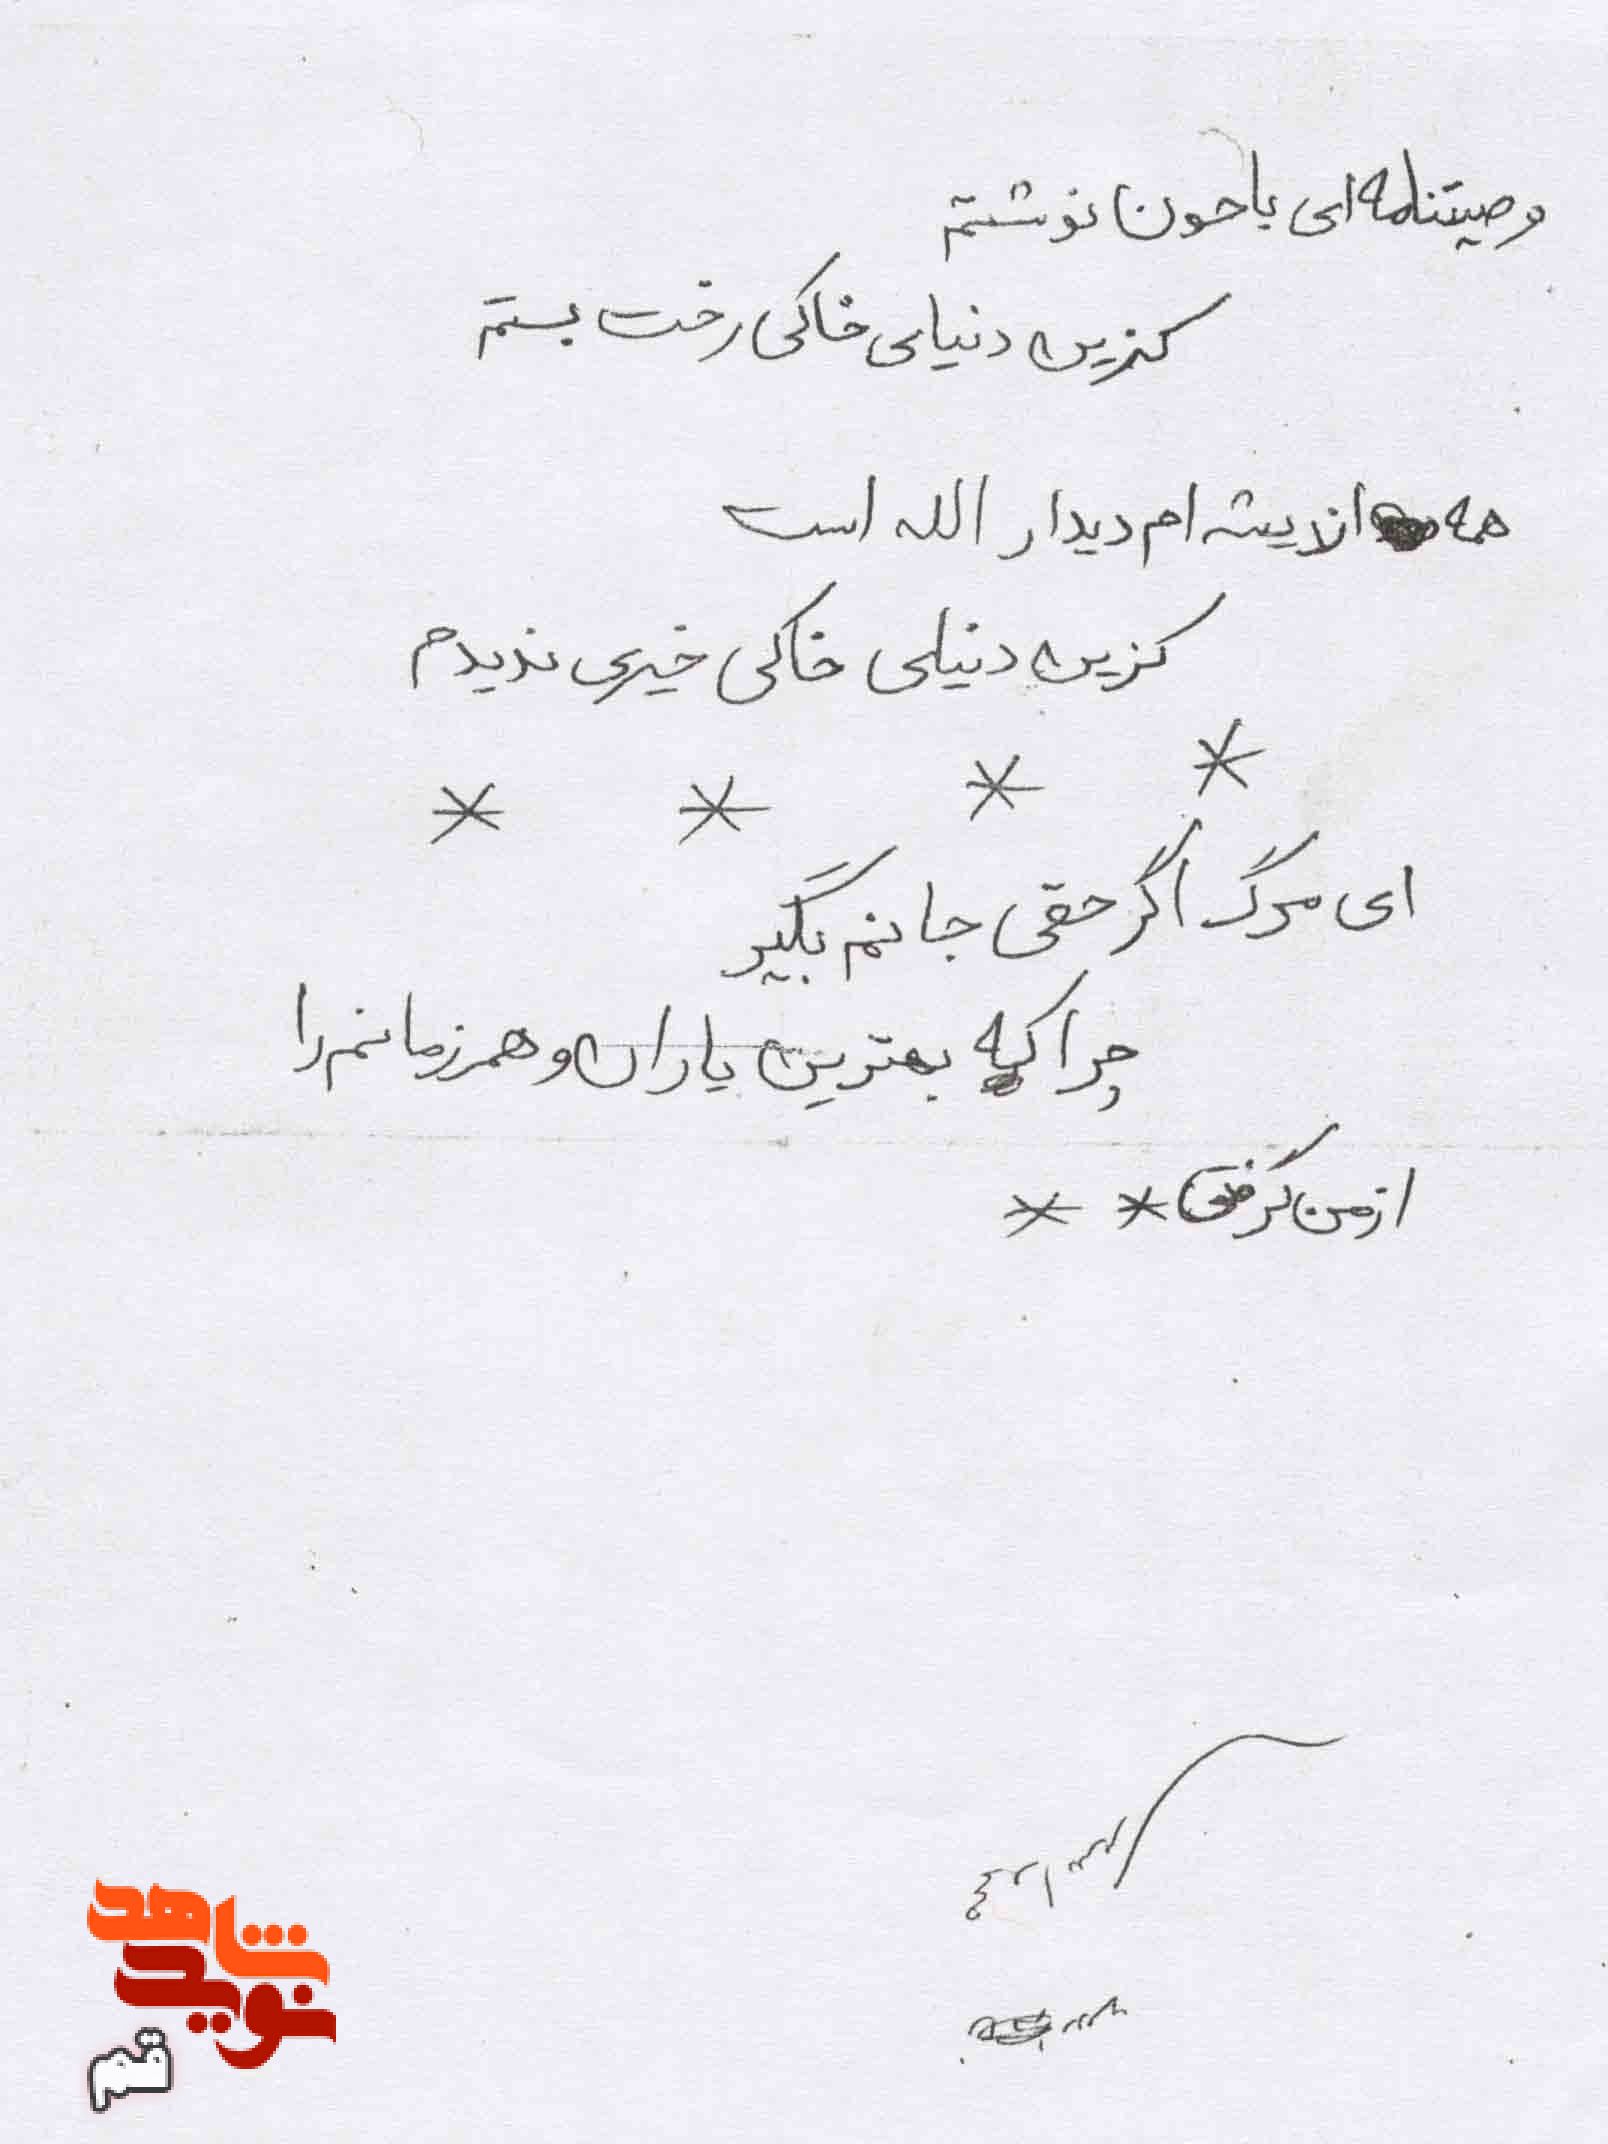 وصیتنامه ای با خون نوشتم
کزین دنیای خاکی رخت بستم
همه اندیشه ام دیدار الله است
کزین دنیای خاکی خیری ندیدم
* * * *
ای مرگ اگر حقی جانم بگیر
چرا که بهترین یاران و همرزمانم را
از من گرفتی * *
شاهد
نوید
قم